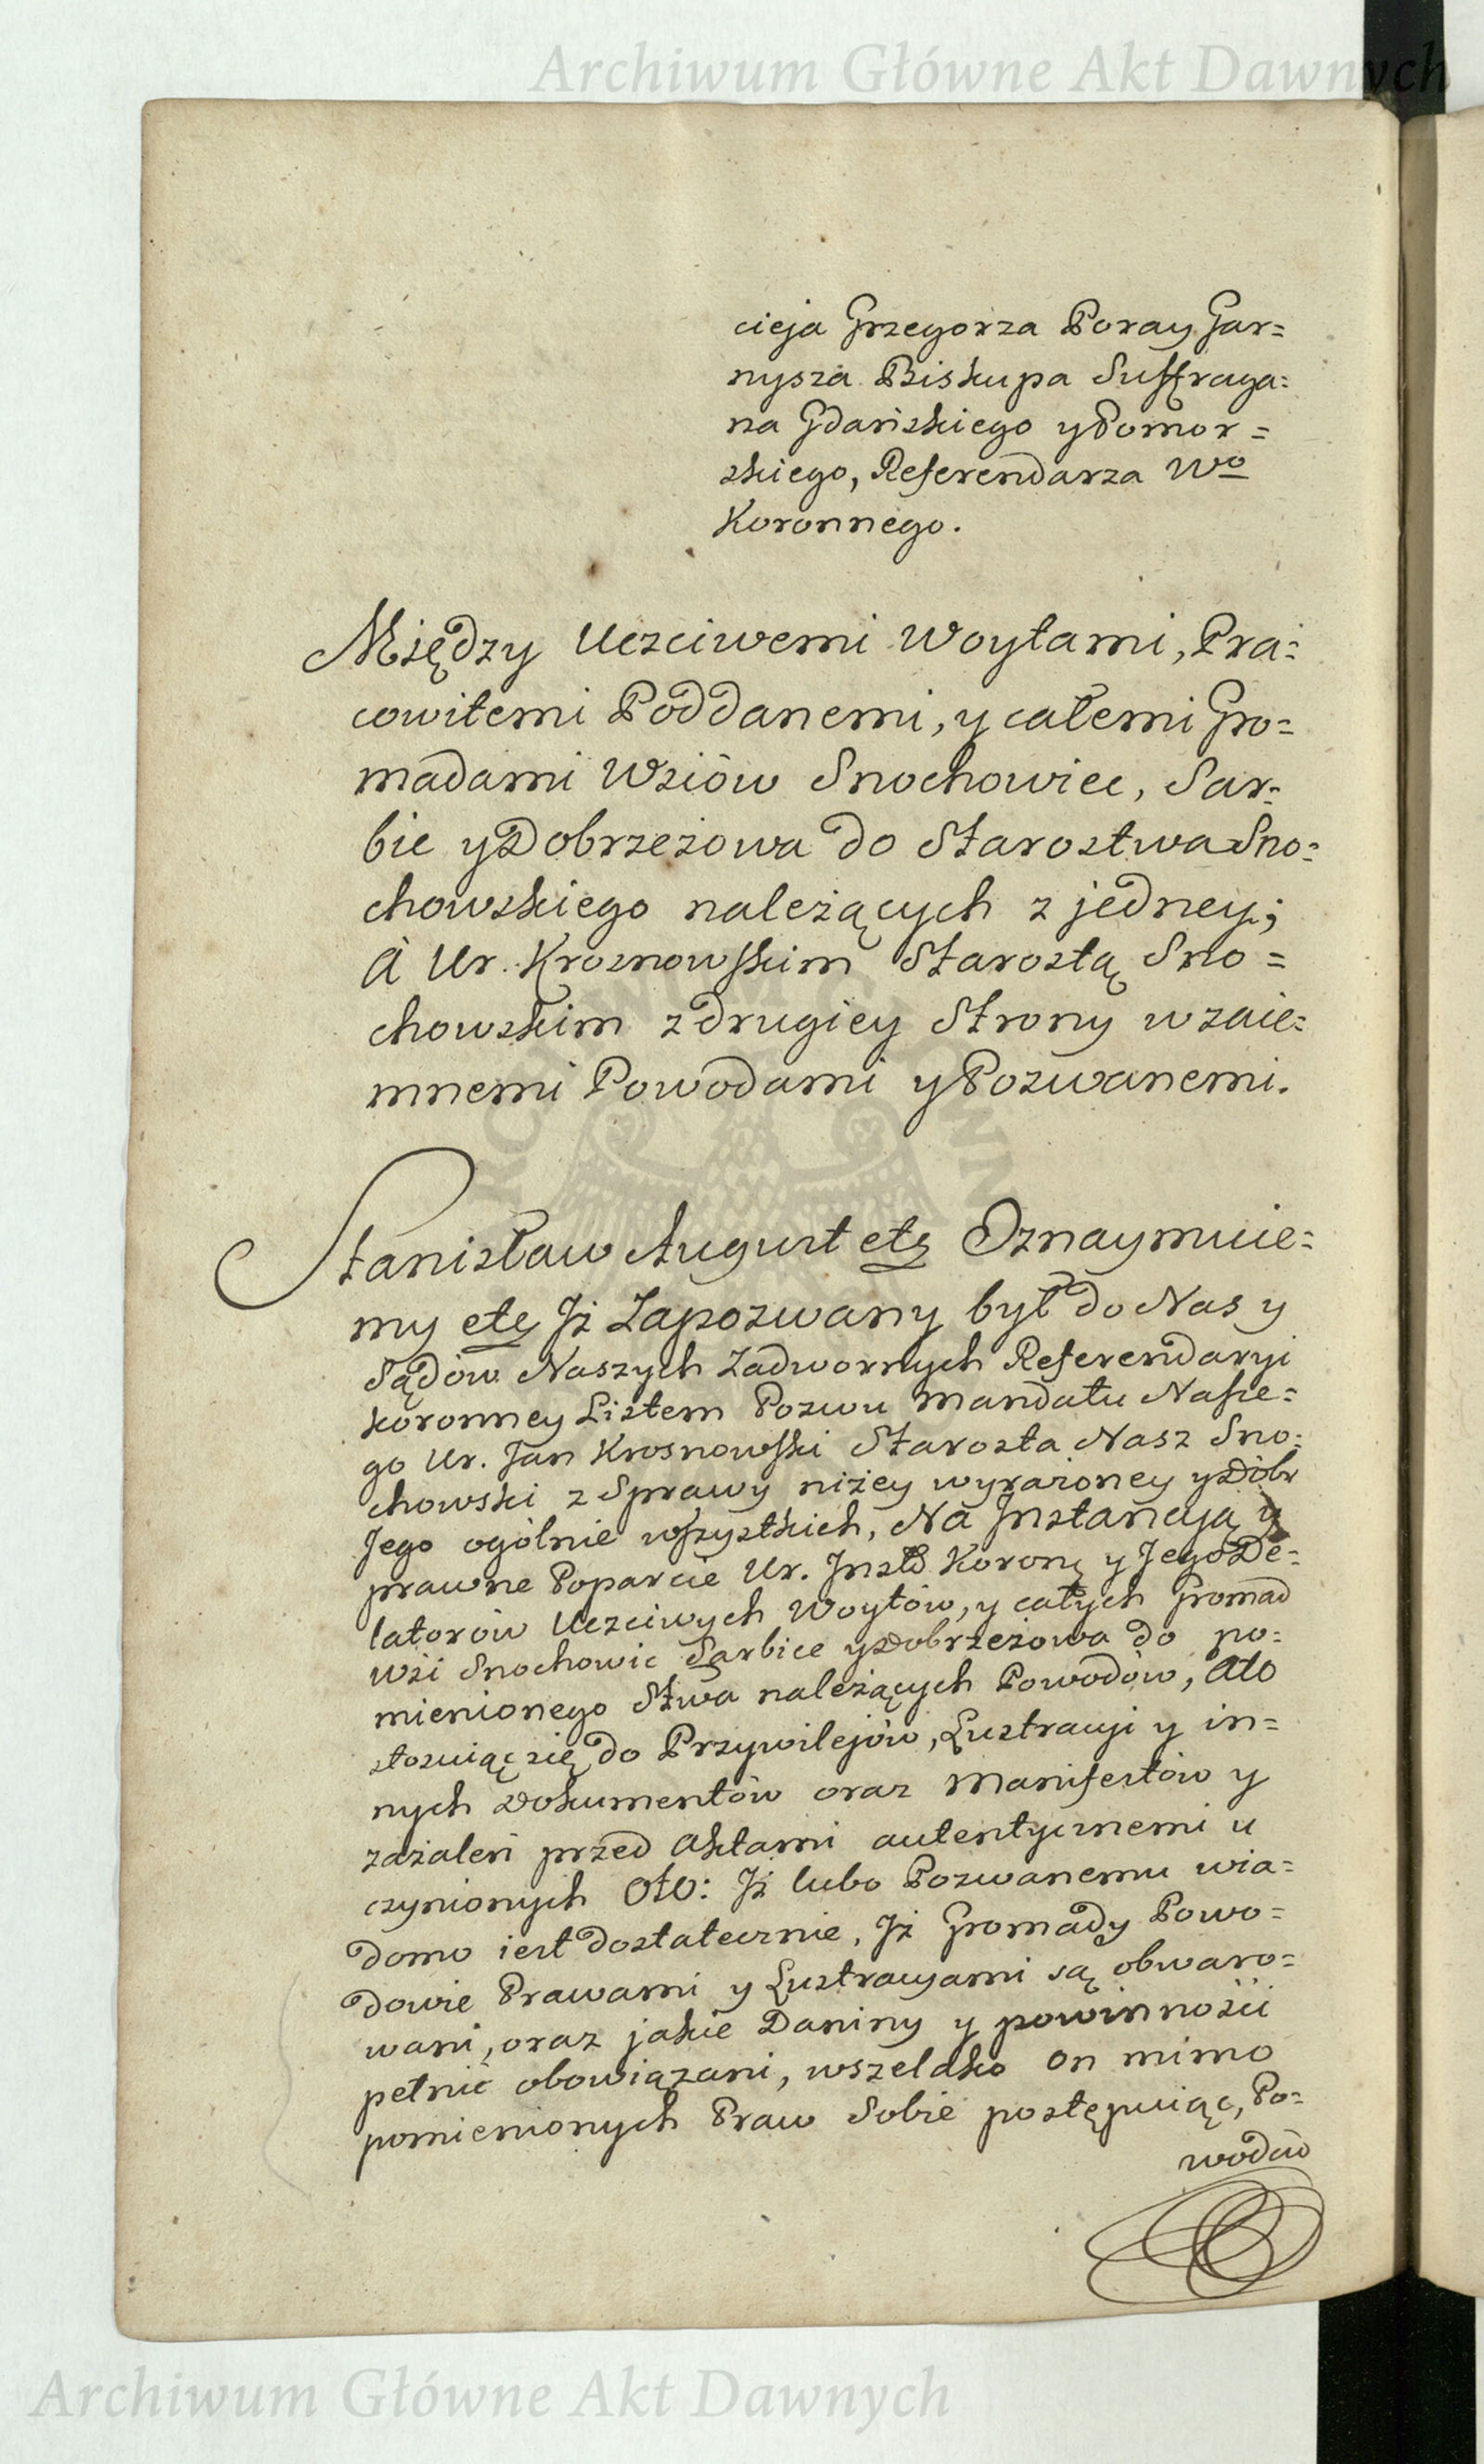 Archiwum Główne Akt Dawnych
cieja Grzegorza Poray Gar=
nysza Biskupa Suffraga=
na Gdańskiego y Pomor=
skiego, Referendarza Wo
Koronnego.
Między Uczciwemi Woytami, Pra=
cowitemi Poddanemi, y całemi Gro=
madami Wsiów Snochowiec, Sar=
bic y Dobrzeszowa do Starostwa Sno=
chowskiego należących z jedney;
à Ur. Krosnowskim Starostą Sno=
chowskim z drugiey Strony wzaie=
mnemi Powodami y Pozwanemi.
Stanisław August etc Oznaymuie=
my etc Jż Zapozwany był do Nas y
Sądów Naszych Zadwornych Referendaryi
koronney Listem Pozwu Mandatu Nasze=
go Ur. Jan Krosnowski Starosta Nasz Sno=
chowski z Sprawy niżey wyrażoney y Dóbr
Jego ogólnie wszystkich, Na Jnstancyją y
prawne Poparcie Ur. Jnstó Koronę y Jego De=
latorów Uczciwych Woytów, y całych Gromad
Wsi Snochowic Sarbice y Dobrzeszowa do po=
mienionego Stwa należących Powodów, Ato
stosuiąc się do Przywilejów, Lustracyi y in=
nych Dokumentów oraz Manifestów y
zażaleń przed Aktami autentycznemi u
czynionych Oto: Jż lubo Pozwanemu wia=
domo iest dostatecznie, Jż Gromady Powo=
dowie Prawami y Lustracyami są obwaro=
wani, oraz jakie Daniny y powinności
pełnić obowiązani, wszelako on mimo
pomienionych Praw Sobie postępuiąc, Po=
wodów
Archiwum Główne Akt Dawnych